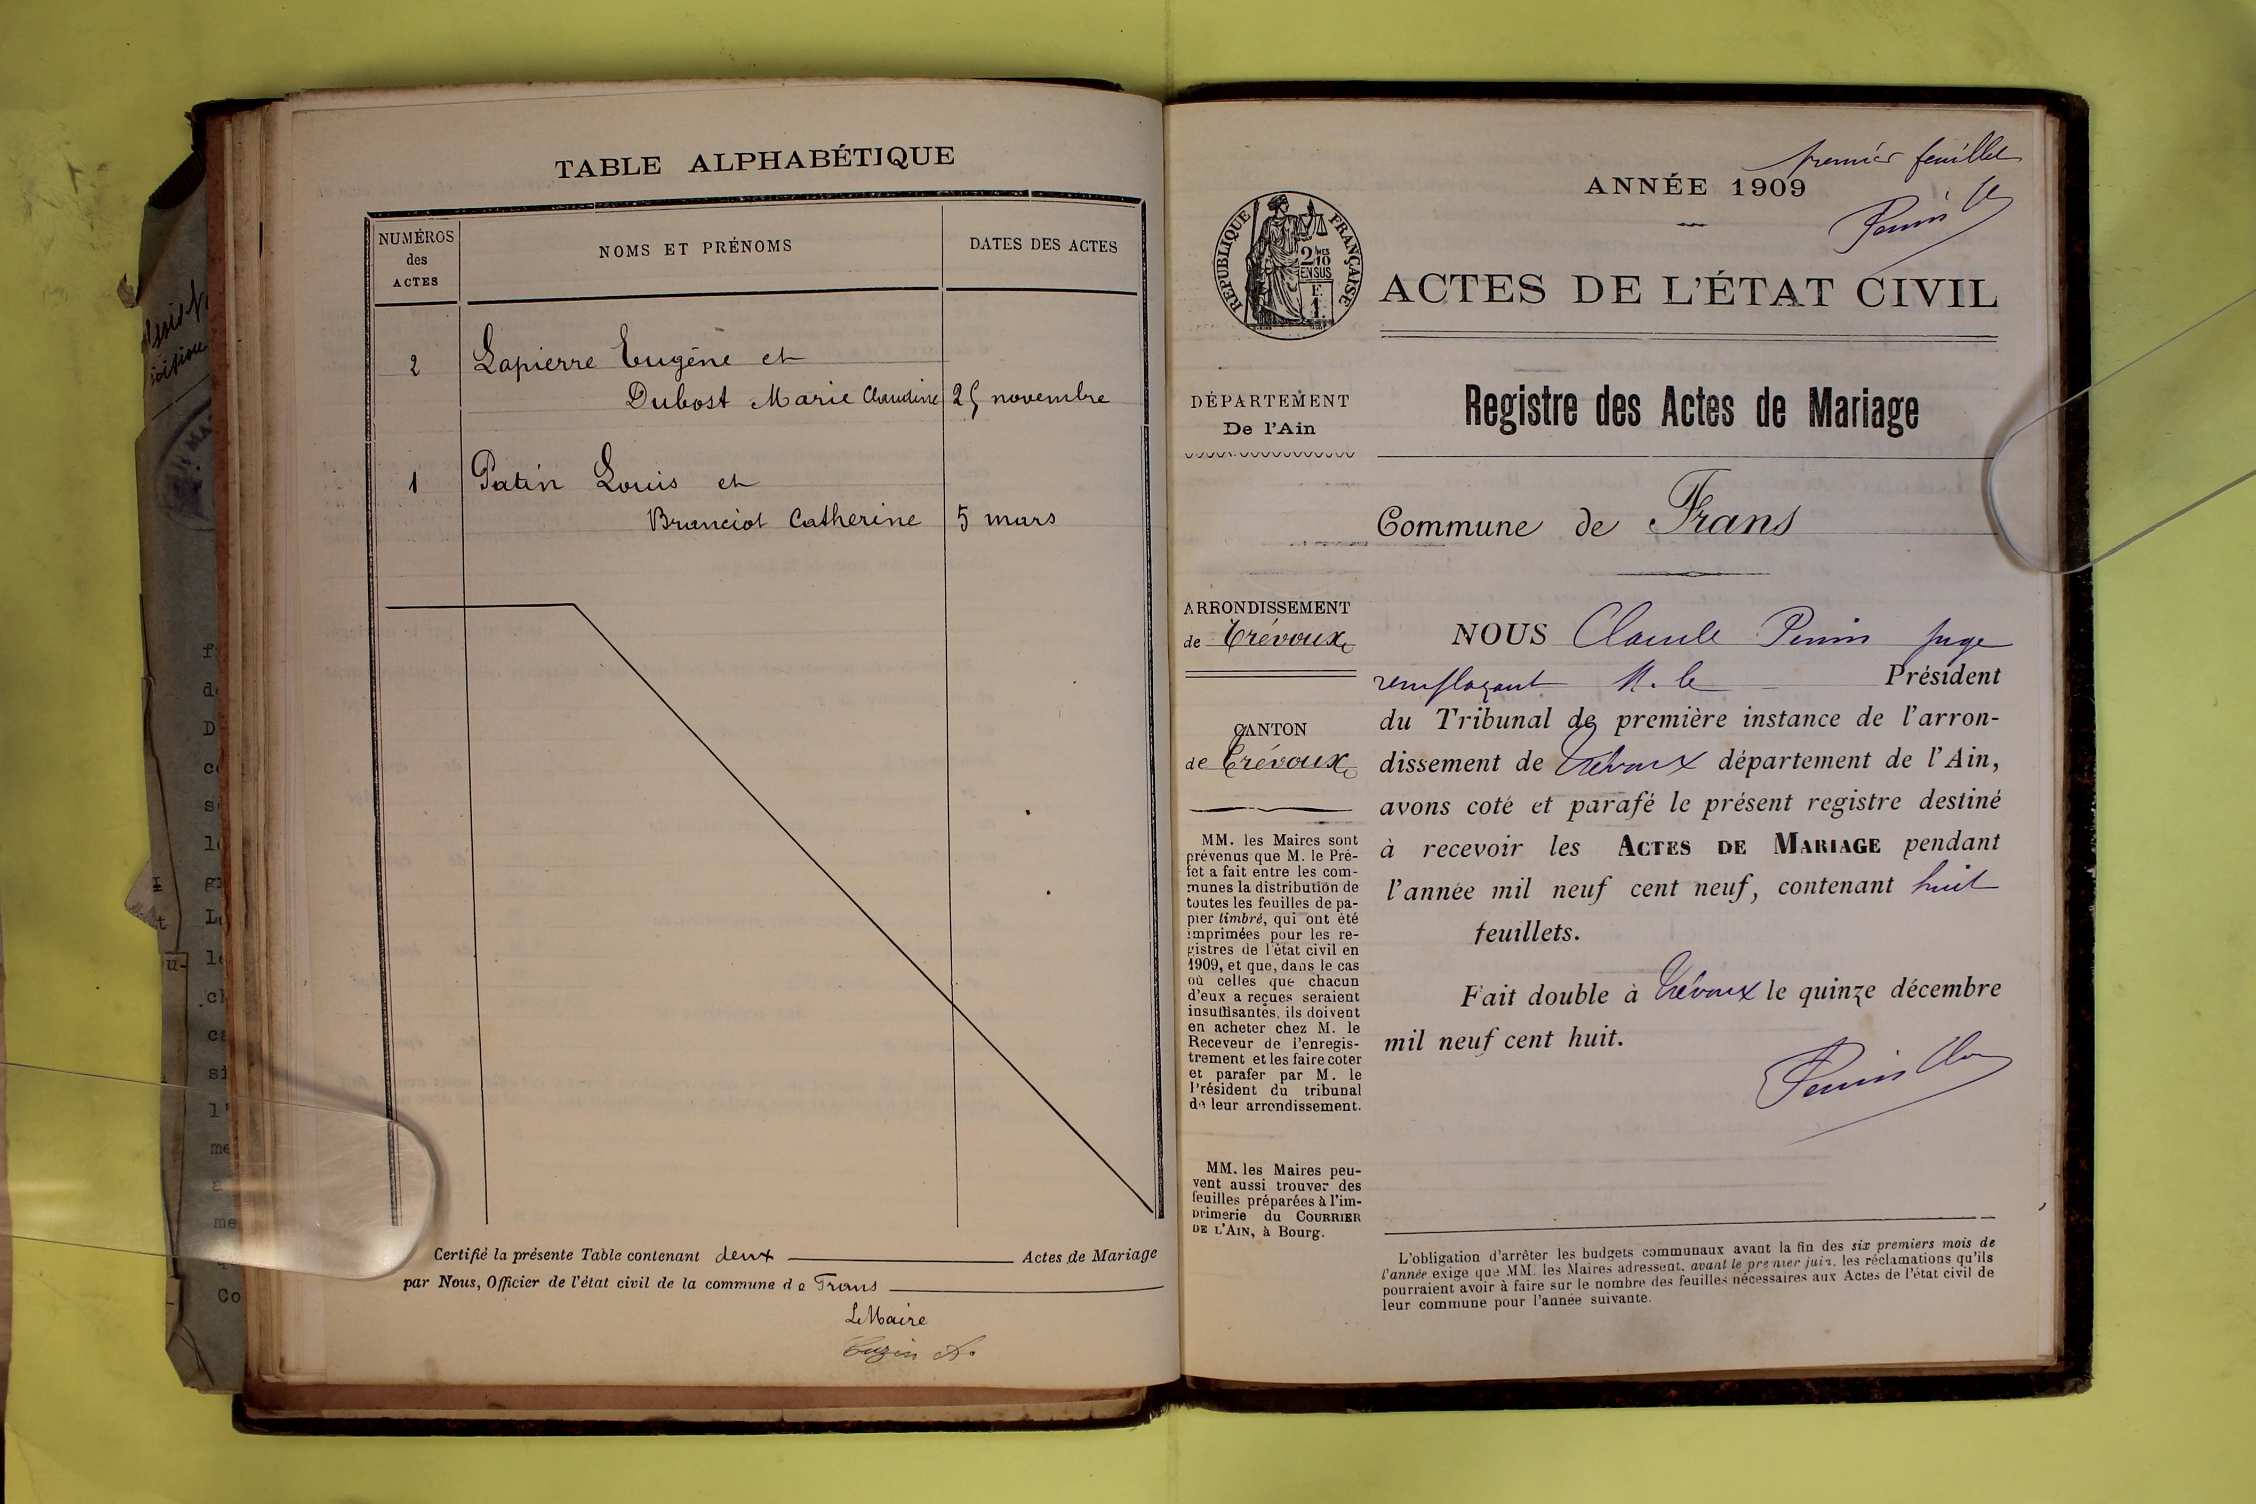 TABLE ALPHABÉTIQUE
NUMÉROS
des
ACTES
NOMS ET PRÉNOMS
DATES DES ACTES
2 Lapierre Eugène et
Dubost Marie Claudine 25 novembre
1 Patin Louis et
Branciot Catherine 5 mars
Certifié la présente Table contenant deux Actes de Mariage
par Nous, Officier de l'état civil de la commune de Frans
Le Maire
premier feuillet
ANNÉE 1909
RÉPUBLIQUE FRANÇAISE
2/10
EN SUS
F.
1.
ACTES DE L'ÉTAT CIVIL
DÉPARTEMENT
De l'Ain
Registre des Actes de Mariage
Commune de Frans
ARRONDISSEMENT
de Trévoux
CANTON
de Trévoux
MM. les Maires sont
prévenus que M. le Pré-
fet a fait entre les com-
munes la distribution de
toutes les feuilles de pa-
pier timbré, qui ont été
imprimées pour les re-
gistres de l'état civil en
1909, et que, dans le cas
où celles que chacun
d'eux a reçues seraient
insuffisantes, ils doivent
en acheter chez M. le
Receveur de l'enregis-
trement et les faire coter
et parafer par M. le
Président du tribunal
de leur arrondissement.
MM. les Maires peu-
vent aussi trouver des
feuilles préparées à l'im-
primerie du COURRIER
DE L'AIN, à Bourg.
NOUS Claude juge
remplaçant M. le Président
du Tribunal de première instance de l'arron-
dissement de Trévoux département de l'Ain,
avons coté et parafé le présent registre destiné
à recevoir les ACTES DE MARIAGE pendant
l'année mil neuf cent neuf, contenant huit
feuillets.
Fait double à Trévoux le quinze décembre
mil neuf cent huit.
L'obligation d'arrêter les budgets communaux avant la fin des six premiers mois de
l'année exige que MM. les Maires adressent, avant le premier juin, les réclamations qu'ils
pourraient avoir à faire sur le nombre des feuilles nécessaires aux Actes de l'état civil de
leur commune pour l'année suivante.